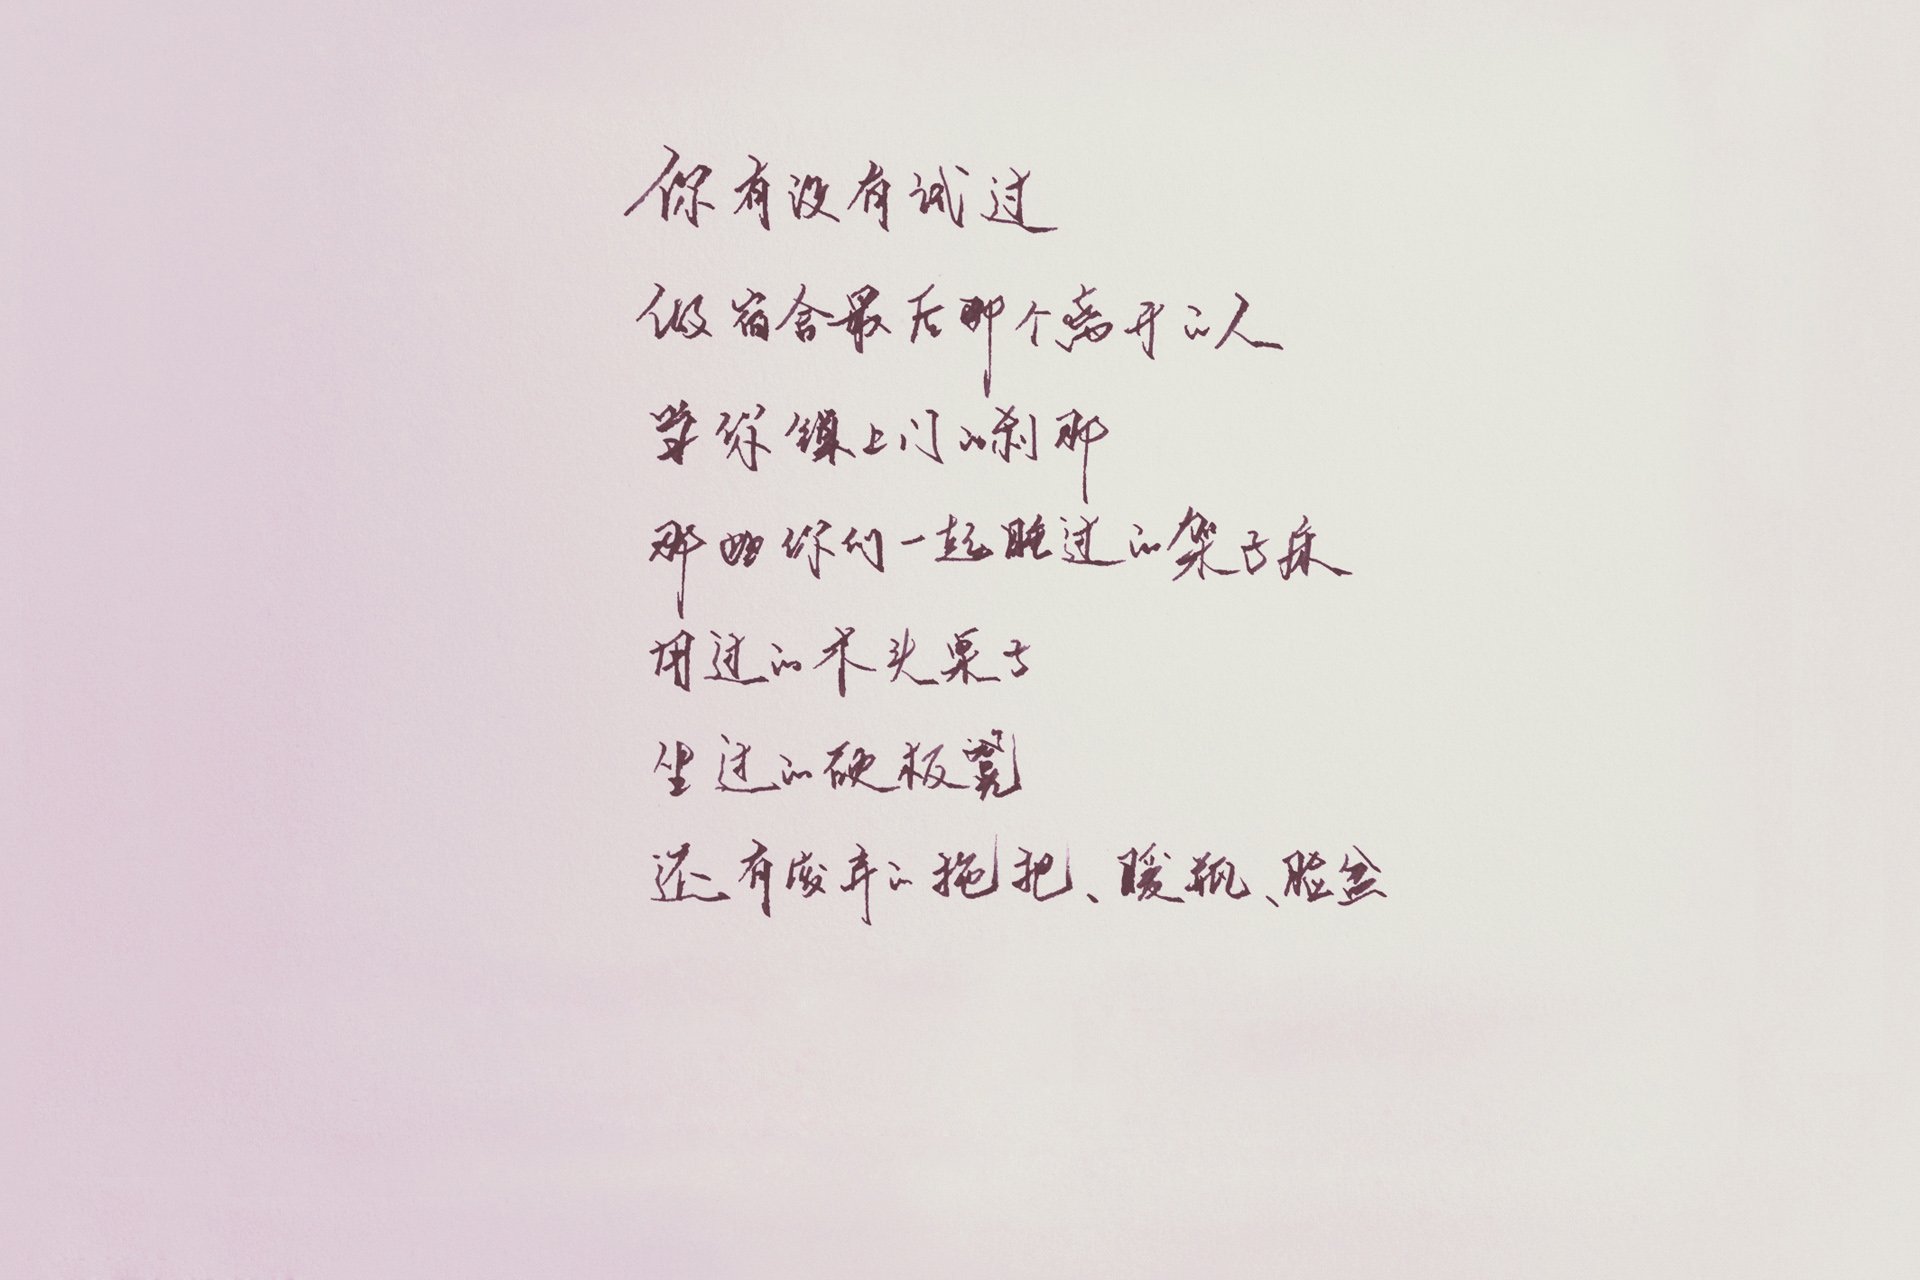 你有没有试过
做宿舍最后那个离开的人
等你锁上门的刹那
那些你们一起睡过的架子床
用过的木头桌子
坐过的硬板凳
还有废弃的拖把、暖瓶、脸盆